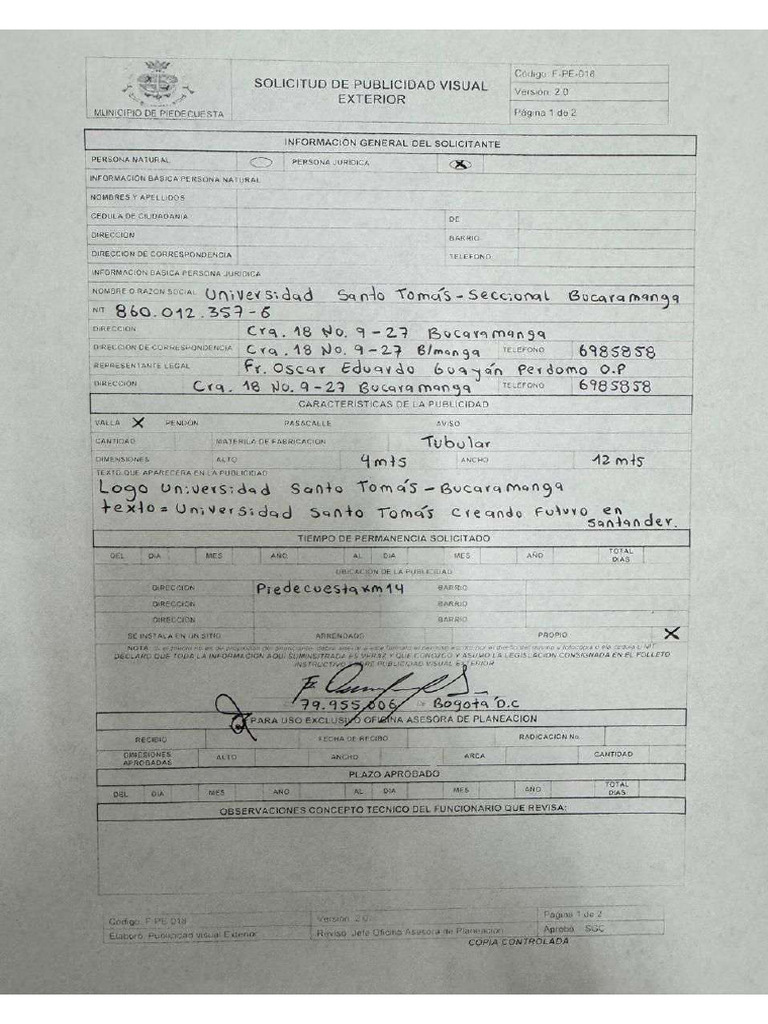 MUNICIPIO DE PIEDECUESTA
SOLICITUD DE PUBLICIDAD VISUAL EXTERIOR
Código: F-PE-018
Versión: 2.0
Página 1 de 2
INFORMACIÓN GENERAL DEL SOLICITANTE
PERSONA NATURAL PERSONA JURIDICA X
INFORMACIÓN BÁSICA PERSONA NATURAL
NOMBRES Y APELLIDOS
CEDULA DE CIUDADANIA DE
DIRECCION BARRIO
DIRECCION DE CORRESPONDENCIA TELEFONO
INFORMACION BASICA PERSONA JURIDICA
NOMBRE O RAZON SOCIAL Universidad Santo Tomás - Seccional Bucaramanga
NIT 860.012.357-6
DIRECCION Cra. 18 No. 9-27 Bucaramanga
DIRECCION DE CORRESPONDENCIA Cra. 18 No. 9-27 B/manga TELEFONO 6985858
REPRESENTANTE LEGAL Fr. Oscar Eduardo Guayán Perdomo O.P
DIRECCION Cra. 18 No. 9-27 Bucaramanga TELEFONO 6985858
CARACTERÍSTICAS DE LA PUBLICIDAD
VALLA X PENDON PASACALLE AVISO
CANTIDAD MATERILA DE FABRICACION Tubular
DIMENSIONES ALTO 4mts ANCHO 12 mts
TEXTO QUE APARECERA EN LA PUBLICIDAD
Logo Universidad Santo Tomás - Bucaramanga
texto = Universidad Santo Tomás Creando Futuro en Santander.
TIEMPO DE PERMANENCIA SOLICITADO
DEL DIA MES AÑO AL DIA MES AÑO TOTAL DIAS
UBICACIÓN DE LA PUBLICIDAD
DIRECCION Piedecuesta km 14 BARRIO
DIRECCION BARRIO
DIRECCION BARRIO
SE INSTALA EN UN SITIO ARRENDADO PROPIO X
DECLARO QUE TODA LA INFORMACION AQUÍ SUMINSITRADA ES VERAZ Y QUE CONOZCO Y ASUMO LA LEGISLACION CONSIGNADA EN EL FOLLETO
INSTRUCTIVO SOBRE PUBLICIDAD VISUAL EXTERIOR
79.955.006 DE Bogotá D.C
PARA USO EXCLUSIVO OFICINA ASESORA DE PLANEACION
RECIBIDO FECHA DE RECIBO RADICACION No.
DIMESIONES APROBADAS ALTO ANCHO AREA CANTIDAD
PLAZO APROBADO
DEL DIA MES AÑO AL DIA MES AÑO TOTAL DIAS
OBSERVACIONES CONCEPTO TECNICO DEL FUNCIONARIO QUE REVISA:
Código: F-PE-018 Versión: 2.0 Página 1 de 2
Elaboró: Publicidad visual Exterior Reviso: Jefe Oficina Asesora de Planeación Aprobó: SGC
COPIA CONTROLADA